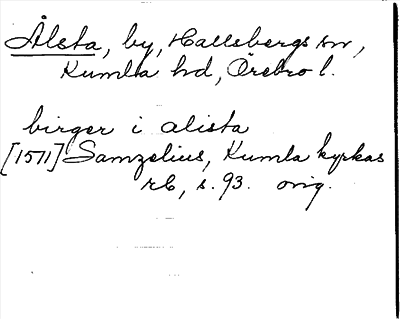 Ålsta, by, Hallsbergs sn,
Kumla hd, Örebro l.
birger i alista
[1571] Samzelius, Kumla kyrkas
rb, s. 93. orig.